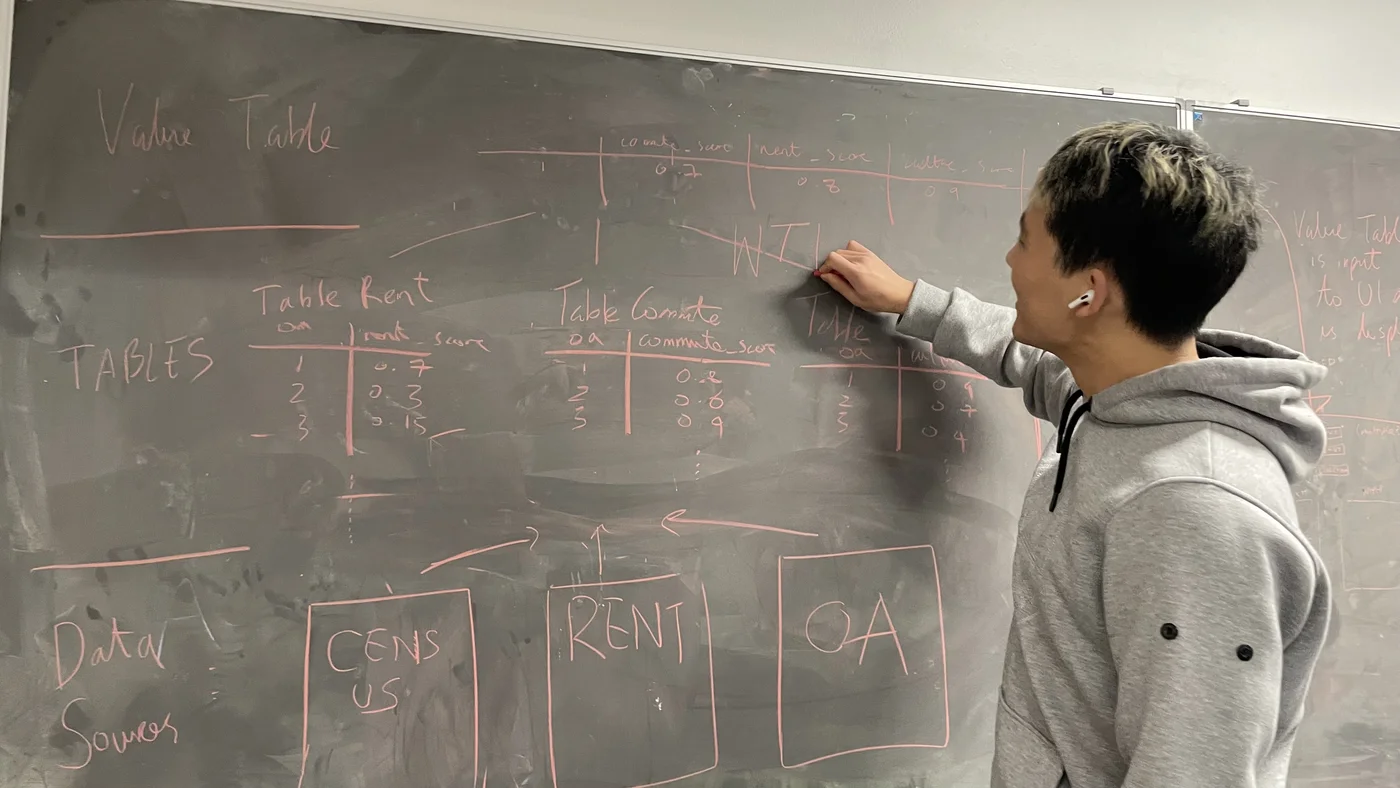 Value Table
commute_score rent_score culture_score
1 0.7 0.8 0.9
WTL
Table Rent
oa rent_score
1 0.7
2 0.3
3 0.15
Table Commute
oa commute_score
1 0.2
2 0.6
3 0.9
Table
oa
1 0.9
2 0.7
3 0.4
TABLES
CENS
US
RENT
OA
Data
Sources
Value Tabl
is input
to UI
is disp